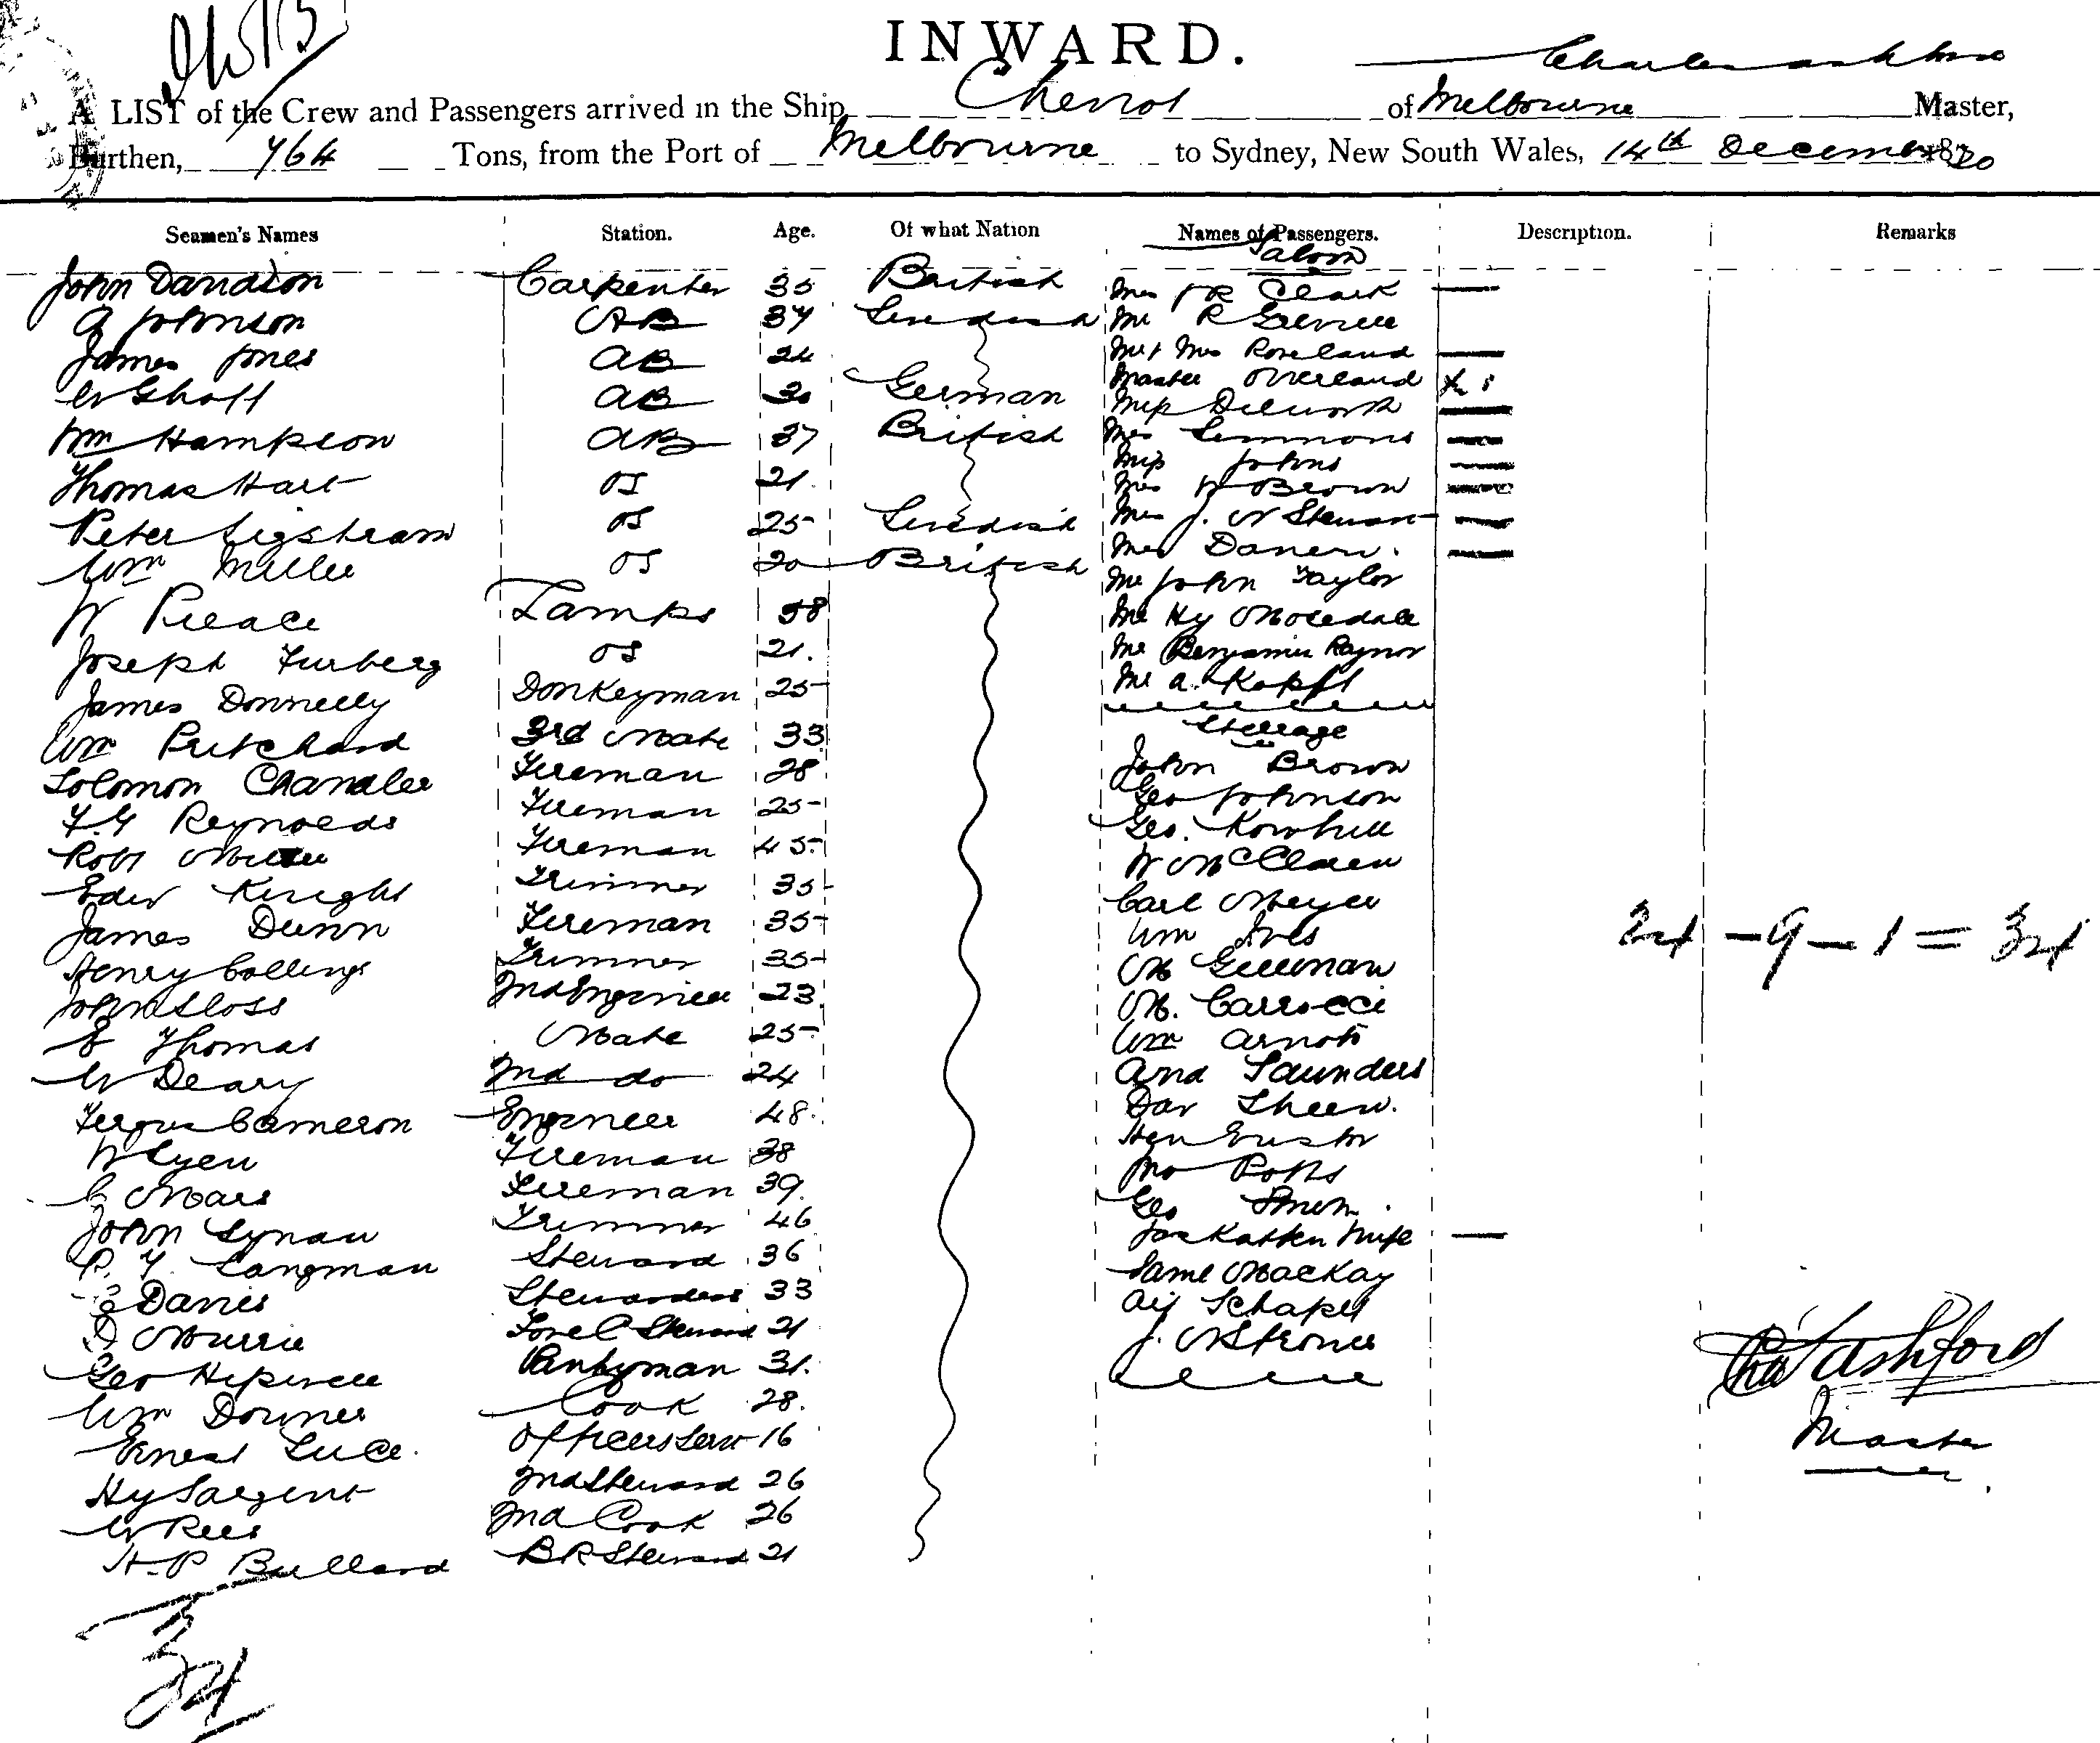 INWARD.
A LIST of the Crew and Passengers arrived in the Ship Cheviot of Melbourne Master,
Burthen, 764 Tons, from the Port of Melbourne to Sydney, New South Wales, 14th December 18
Seamen's Names Station. Age. Of what Nation Names of Passengers. Description. Remarks
Saloon
John Davidson Carpenter 35 British Mrs Clark
A Johnson AB 37 Swedish Mr R
James Jones AB 24 Mr & Mrs Roseland
AB German Master Overland
Wm Hampson AB 37 British Miss Dilworth
Thomas Hart OS 21 Mrs Simmons
Peter Sigstram OS 25 Swedish Miss Johns
Wm Miller OS 20 British Mrs W Brown
W Pierce Lamps Mrs J. W Stewart
Joseph Furberg OS 21. Mrs
James Donnelly Donkeyman 25 Mr John Taylor
Wm Pritchard 3rd Mate 33 Mr Hy Mosedale
Solomon Chandler Fireman 28 Mr Benjamin Raynor
F.G Reynolds Fireman 25 Mr A. Kopft
Robt Fireman 45 Steerage
Edw Knight Trimmer 35 John Brown
James Dunn Fireman 35 Geo Johnson
Henry Collings Trimmer 35 Geo.
John Sloss 2nd Engineer 23 W McClaren
E Thomas Mate 25 Carl Meyer
W Deary 2nd do 24 Wm Ives
Fergus Cameron Engineer 48. M
W Lyen Fireman 38 M.
C Mars Fireman 39. Wm Arnott
John Lynau Trimmer 46 And Saunders
P. Y. Langman Steward 36 Dav Sheen.
E Davies Stewardess 33 Hen
D Murrie Fore C Steward 21 Jno Potts
Geo Hepwell Pantryman 31. Geo
Wm Downes Cook 28.
Ernest Luce. Officers Serv 16 Saml Mackay
Hy Sargent 2nd Steward 26
W Rees 2nd Cook 26 J.
H.P Bullard BR Steward 21
24 - 9 - 1 = 34
Chas Ashford
Master
34